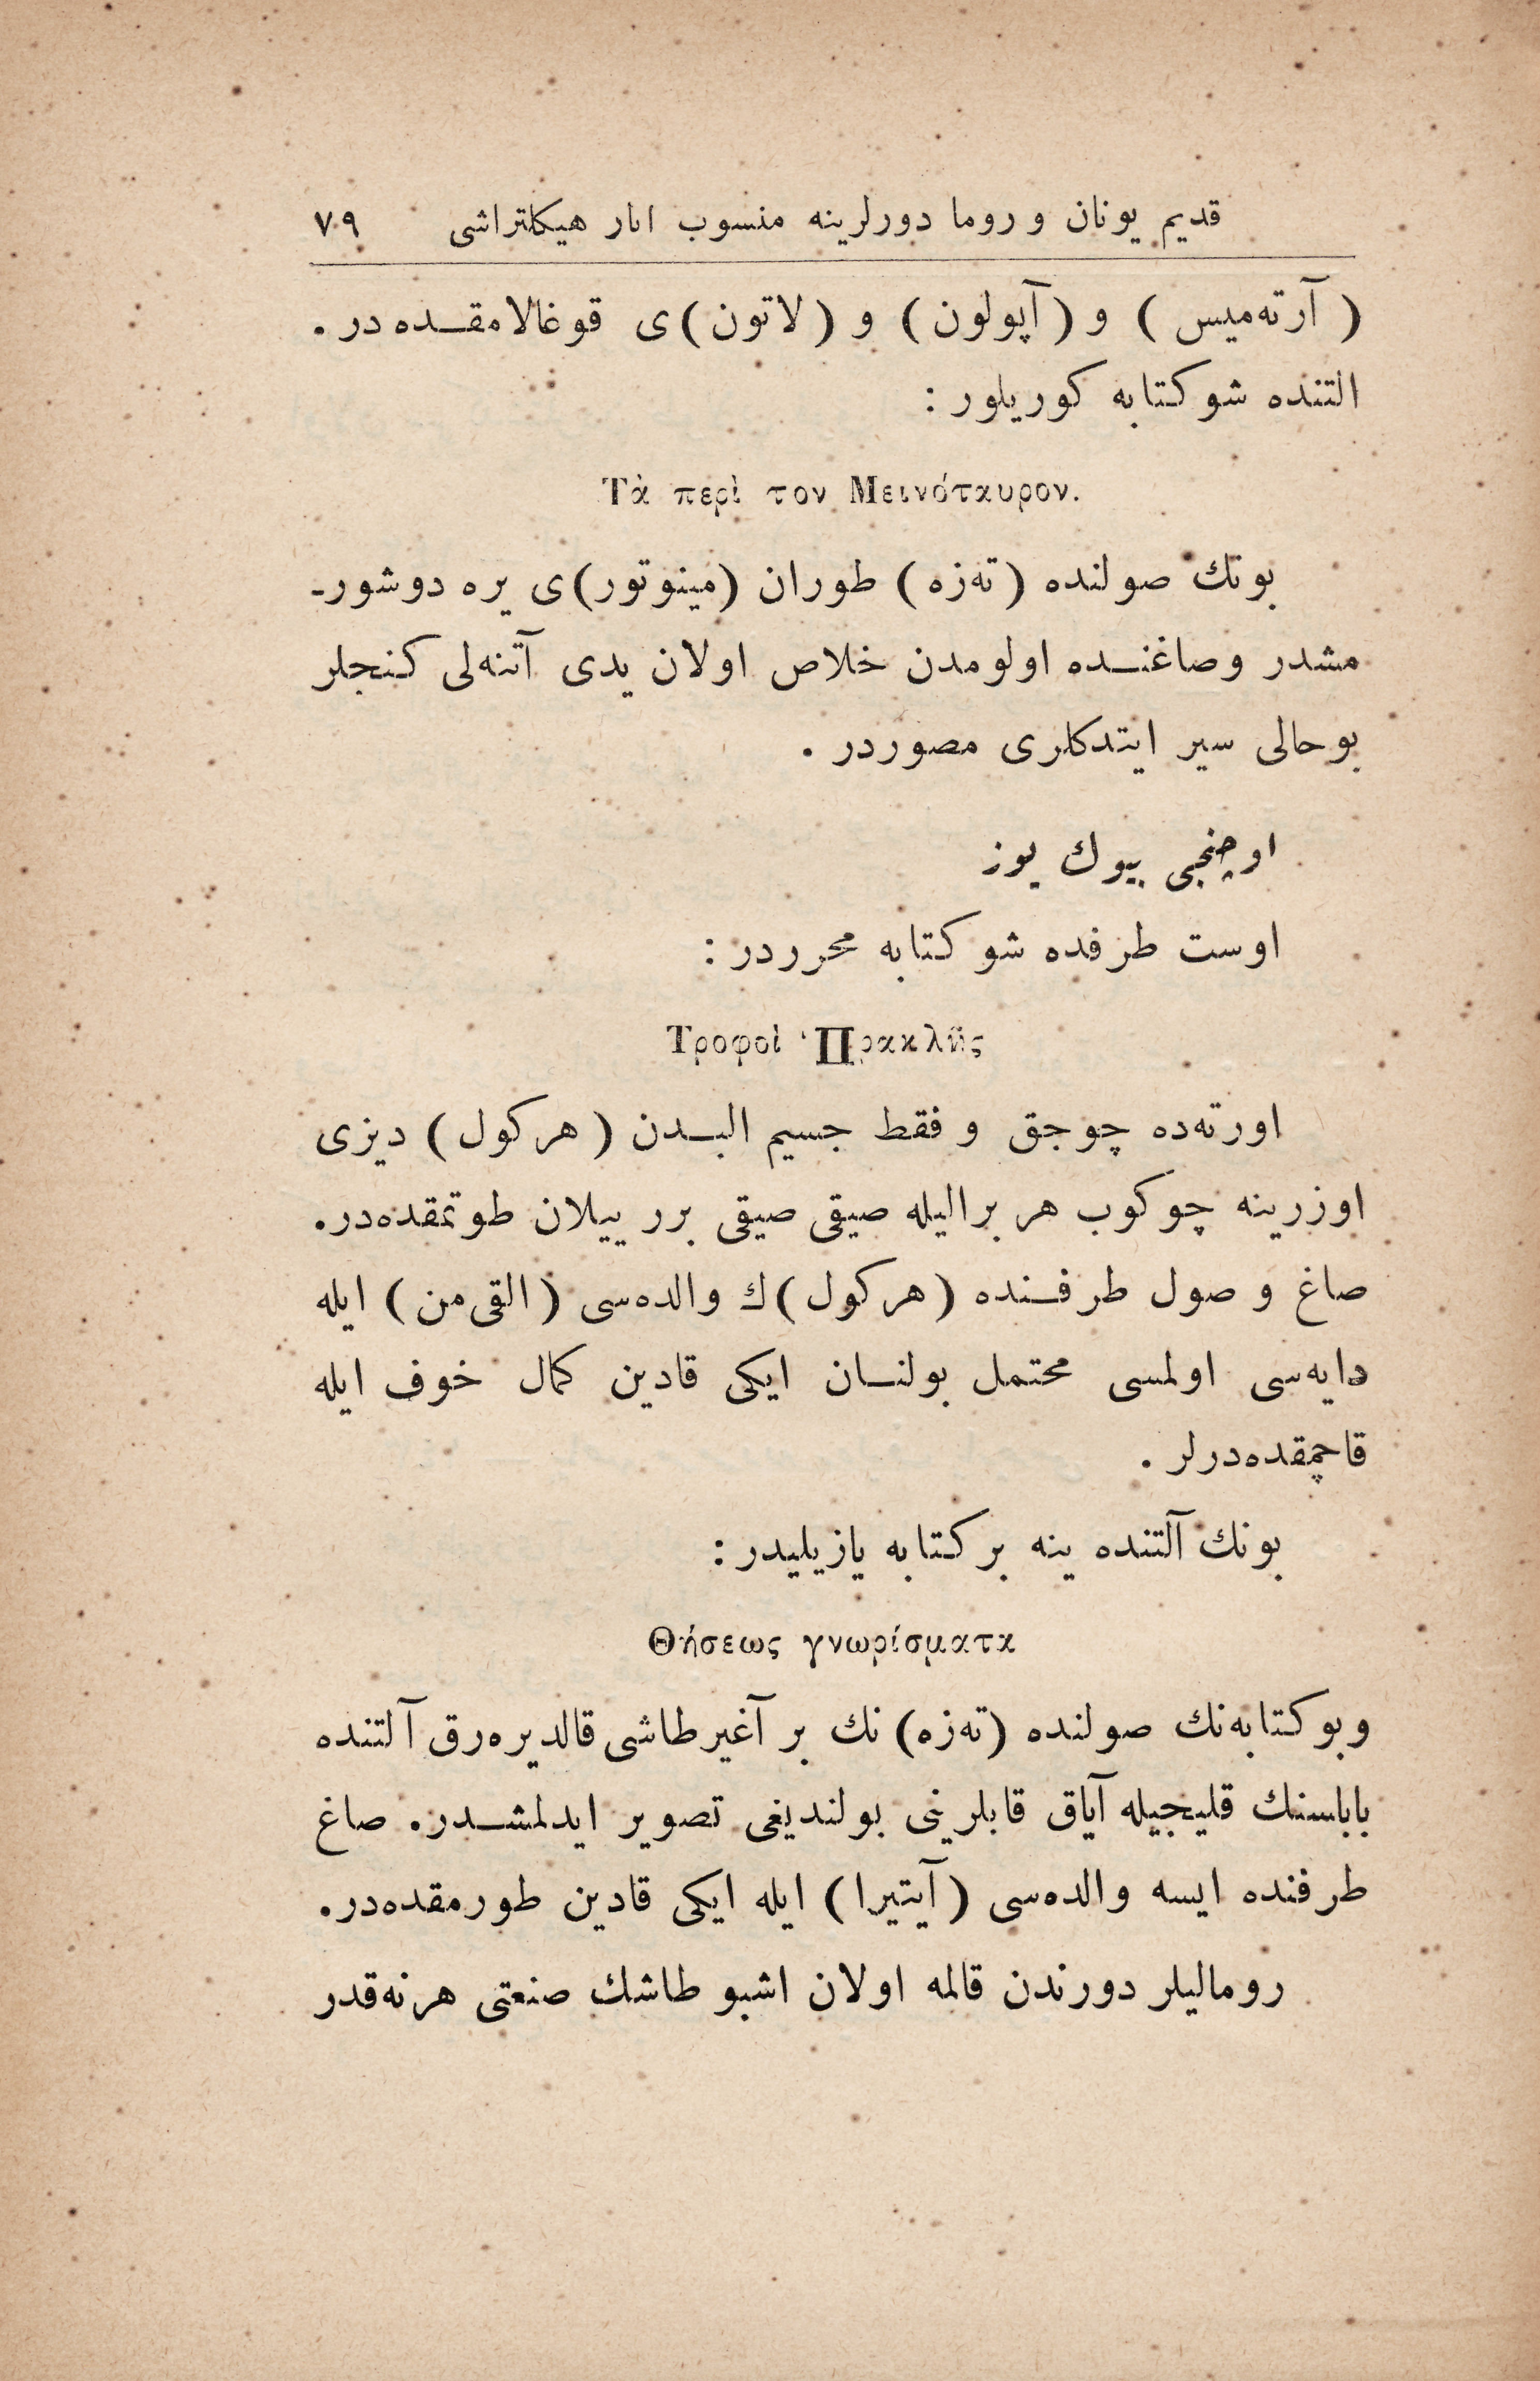 قديم يونان و روما دورلرينه منسوب اثار هيكلتراشى ٧٩
( آرته‌ميس ) و ( آپولون ) و ( لاتون )ى قوغالامقده‌در .
التنده شو كتابه كوريلور :
Τὰ περὶ τον Μεινόταυρον.
بونك صولنده ( ته‌زه ) طوران (مينوتور)ى يره دوشور-
مشدر وصاغنده اولومدن خلاص اولان يدى آتنه‌لى كنجلر
بوحالى سير ايتدكلرى مصوردر .
اوچنجى بيوك يوز
اوست طرفده شو كتابه محرردر :
Τροφοὶ ῾Πρακλῆς
اورته‌ده چوجق و فقط جسيم البدن ( هركول ) ديزى
اوزرينه چوكوب هر براليله صيقى صيقى برر ييلان طوتمقده‌در.
صاغ و صول طرفنده ( هركول )ك والده‌سى ( القى‌من ) ايله
دايه‌سى اولمسى محتمل بولنان ايكى قادين كمال خوف ايله
قاچمقده‌درلر .
بونك آلتنده ينه بر كتابه يازيليدر :
Θήσεως γνωρίσματα
وبو كتابه‌نك صولنده (ته‌زه) نك بر آغيرطاشى قالديره‌رق آلتنده
باباسنك قليجيله آياق قابلرينى بولنديغى تصوير ايدلمشدر. صاغ
طرفنده ايسه والده‌سى ( آيتيرا ) ايله ايكى قادين طورمقده‌در.
روماليلر دورندن قالمه اولان اشبو طاشك صنعتى هرنه‌قدر